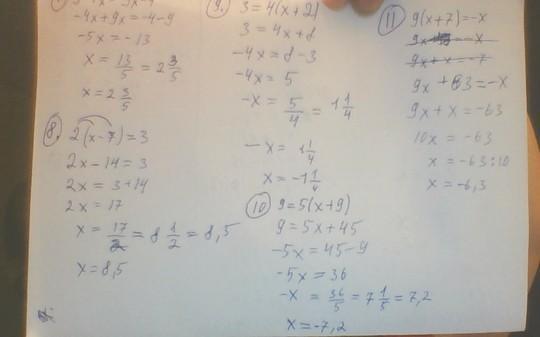 -4x+9x=-4-9
-5x=-13
x = 13/5 = 2 3/5
x = 2 3/5
8. 2(x-7)=3
2x-14=3
2x = 3+14
2x = 17
x = 17/2 = 8 1/2 = 8,5
x=8,5
9. 3=4(x+2)
3=4x+8
-4x=8-3
-4x=5
-x = 5/4 = 1 1/4
-x = 1 1/4
x = -1 1/4
10 9=5(x+9)
9=5x+45
-5x=45-9
-5x=36
-x = 36/5 = 7 1/5 = 7,2
x=-7,2
11 9(x+7)=-x
9x+x=-7
9x+63=-x
9x+x=-63
10x = -63
x = -63:10
x = -6,3